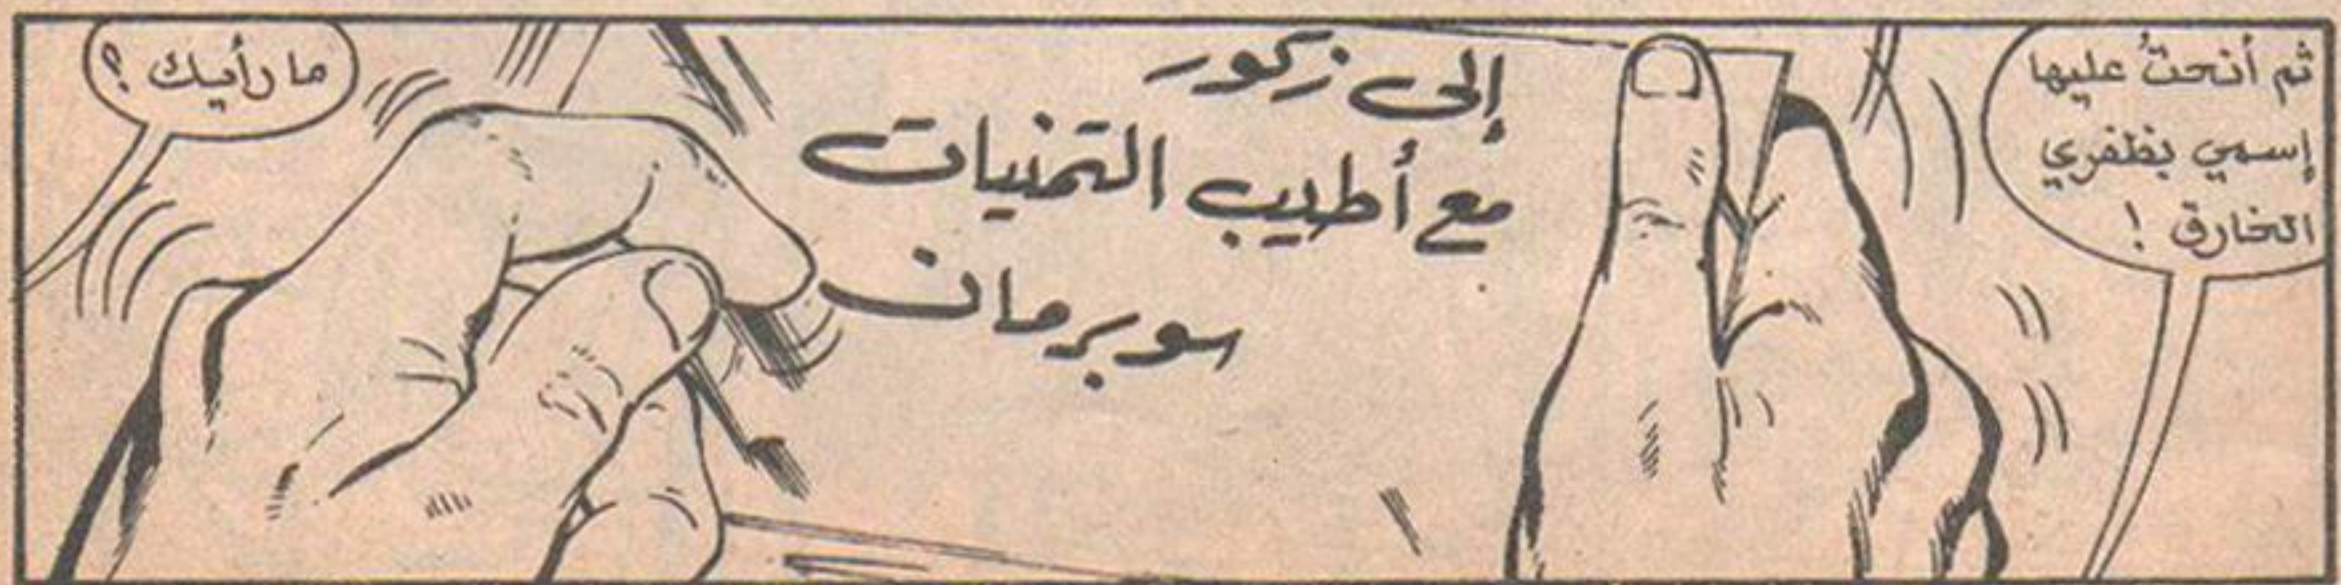 ثم أنحتُ عليها
إسمي بظفري
الخارق !
إلى زكور
مع أطيب التمنيات
سوبرمان
ما رأيك ؟